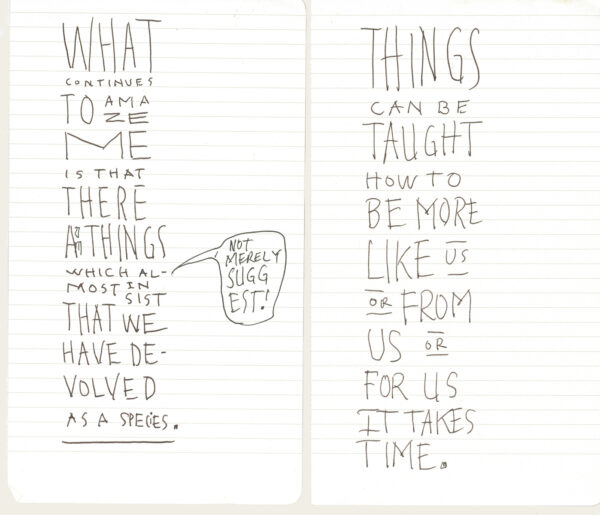 WHAT
CONTINUES
TO AMA
ZE
ME
IS THAT
THERE
THINGS
WHICH AL-
MOST IN
SIST
THAT WE
HAVE DE-
VOLVED
AS A SPECIES.
NOT
MERELY
SUGG
EST!
THINGS
CAN BE
TAUGHT
HOW TO
BE MORE
LIKE US
OR FROM
US OR
FOR US
IT TAKES
TIME.